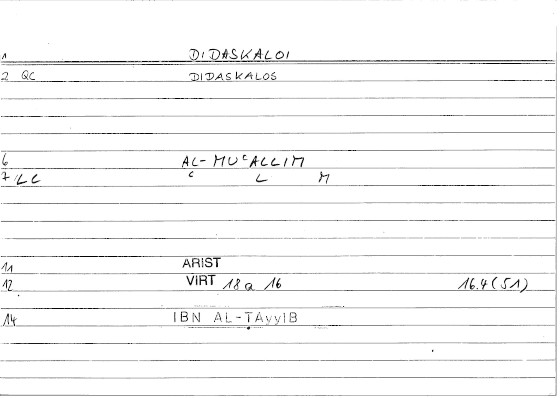 1 DIDASKALOI
2 QC DIDASKALOS
6 AL-MUʿALLIM
7 LC ʿ L M
11 ARIST
12 VIRT 18a 16 16.4(51)
14 IBN AL-TAyyIB